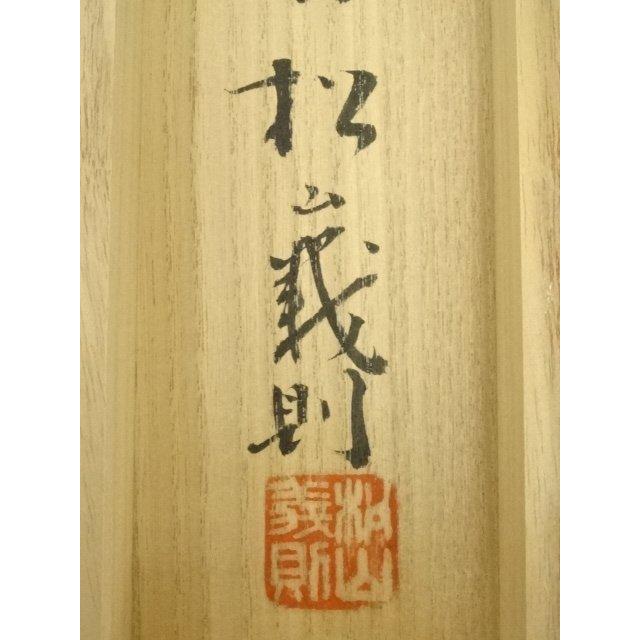 松山義則
松山
義則